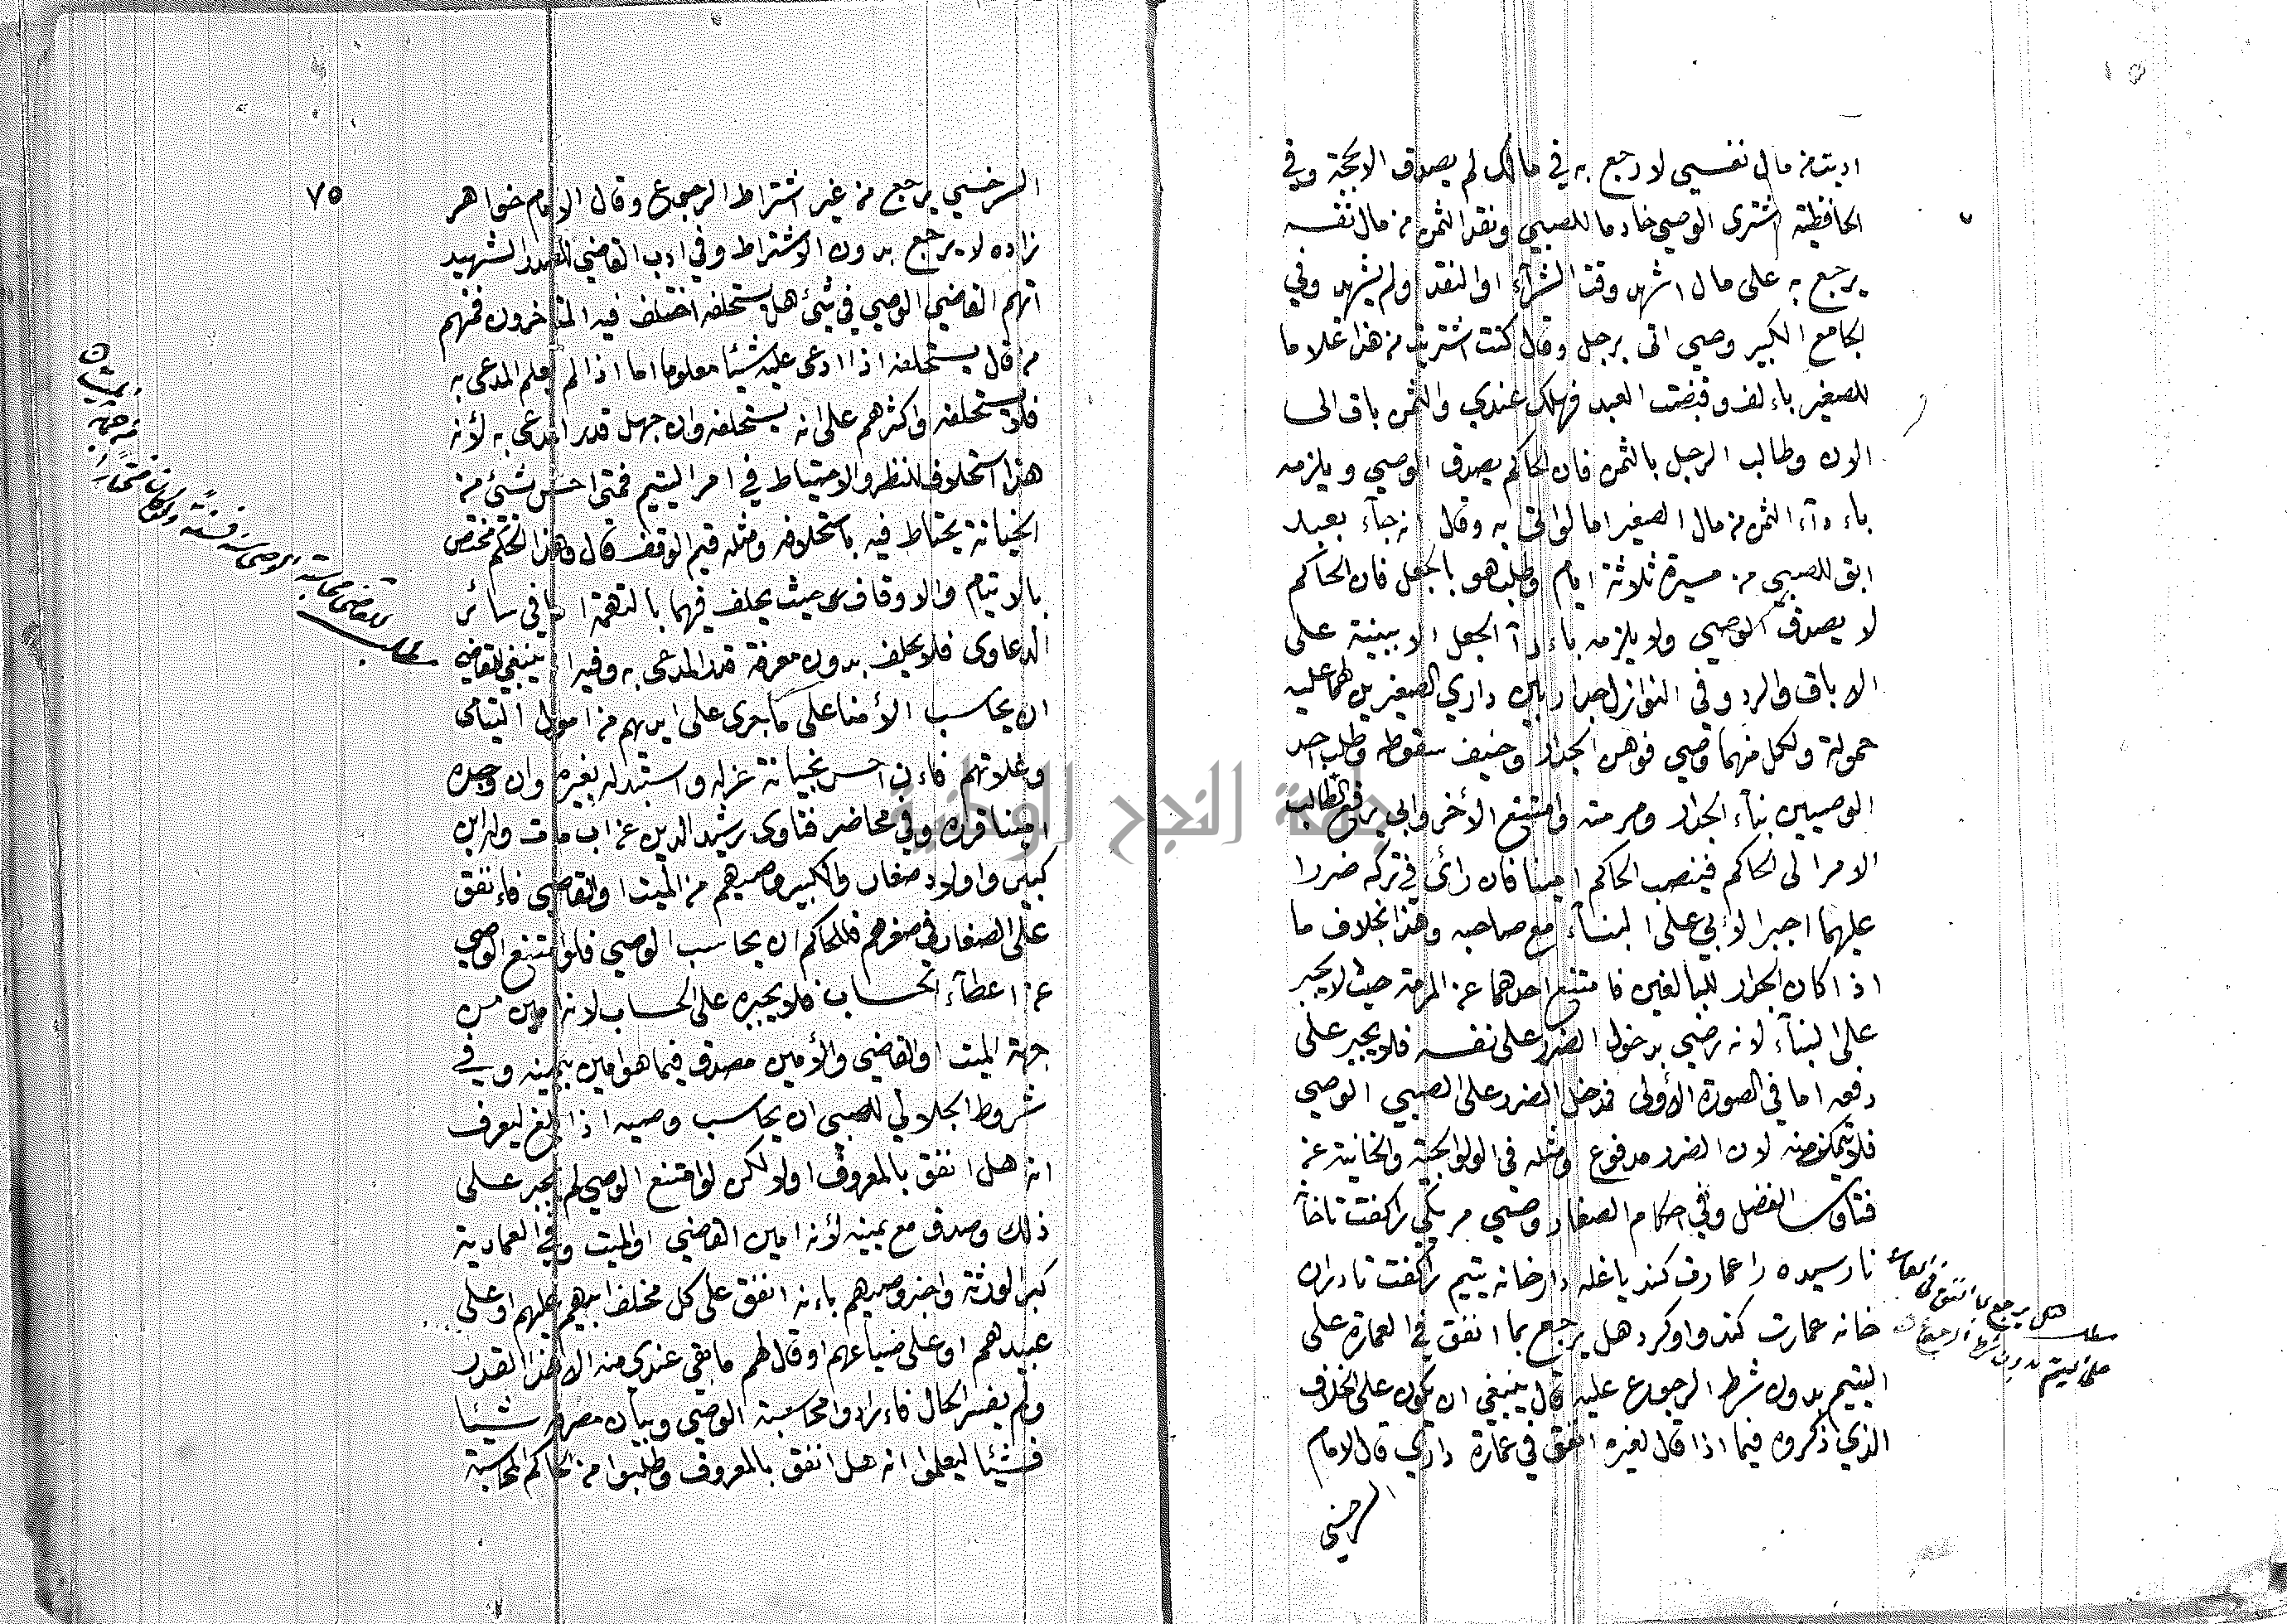 اديته من مال نفسي لارجع به في مالك لم يصدق الا بحجة وفي
الحافظية اشترى الوصي خادما للصبي ونقد الثمن من مال نفسه
يرجع به على مال اشهد وقت الشرآء او النقد او لم يشهد وفي
الجامع الكبير وصي اتى برجل وقال كنت اشتريت من هذا غلاما
للصغير باءلف وقبضت العبد فهلك عندي والثمن باق الى
الان وطالب الرجل بالثمن فان الحاكم يصدق الوصي ويلزمه
باءدآء الثمن من مال الصغير اما لو اتى به وقال انه جآء بعبد
ابق للصبي من مسيرة ثلاثة ايام وطلب هو بالجعل فان الحاكم
لا يصدق الوصي ولا يلزمه باءدآ الجعل الا ببينة على
الاباق والرد وفي النوازل جدار بين داري الصغيرين لهما عليه
حمولة ولكل منهما وصي فوهن الجدار وخيف سقوطه وطلب احد
الوصيين بنآء الجدار ومرمته وامتنع الأخر وابى يرفع الطالب
الامر الى الحاكم فينصب الحاكم امينا فان رأى في تركه ضررا
عليهما اجبر الأبي على البنآء مع صاحبه وهذا بخلاف ما
اذا كان الجدار للبالغين فامتنع احدهما عن المرمة حيث لا يجبر
على البنآء لانه رضي بدخول الضرر على نفسه فلا يجبر على
دفعه اما في الصورة الأولى فدخل الضرر على الصبي الوصي
فلا يتمكن منه لان الضرر مدفوع ومثله في الولوالجية والخانية عن
فتاوى الفضل وفي احكام الصغار وصي مر يكي را كفت تا خانه
نارسيده را عمارت كند يا غله دار خانه يتيم را كفت تا دران
خانه عمارت كند واو كرد هل يرجع بما انفق في العمارة على
اليتيم بدون شرط الرجوع عليه قال ينبغي ان يكون على الخلاف
الذي ذكروه فيما اذا قال لغيره انفق في عمارة داري قال الامام
السرخسي
مطلب هل يرجع بما انفق في العمارة
على اليتيم بدون شرط الرجوع ام لا
٧٥
السرخسي يرجع من غير اشتراط الرجوع وقال الامام خواهر
زاده لا يرجع بدون الاشتراط وفي ادب القاضي للصدر الشهيد
اتهم القاضي الوصي في شئ هل يستحلفه اختلف فيه المتاخرون فمنهم
من قال يستحلفه اذا ادعى عليه شيئا معلوما اما اذا لم يعلم المدعى به
فلا يستحلفه واكثرهم على انه يستحلفه وان جهل قدر المدعى به لأنه
هذا استحلاف للنظر والاحتياط في امر اليتيم فمتى احس شئ من
الخيانة يحتاط فيه باستحلافه ومثله قيم الوقف قال وهذا الحكم مختص
بالايتام والاوقاف حيث يحلف فيهما بالتهمة اما في سائر
الدعاوى فلا يحلف بدون معرفة قدر المدعى به وفيه ينبغي للقاضي
ان يحاسب الأمنا على ما يجرى على ايديهم من اموال اليتامى
وغلاتهم فاءن احس بخيانة عزله واستبدله بغيره وان وجده
امينا قراه وفي محاضر فتاوى رشيد الدين عن اب مات وله ابن
كبير واولاد صغار والكبير وصيهم من الميت او القاضي فاءنفق
على الصغار في صغرهم فللحاكم ان يحاسب الوصي فلو امتنع الوصي
عن اعطآء الحساب فلا يجبره على الحساب لانه امين من
جهة الميت او القاضي والأمين مصدق فيما هو امين بيمينه وفي
شروط الجلالي للصبي ان يحاسب وصيه اذا بلغ ليعرف
انه هل انفق بالمعروف او لا ولكن لو امتنع الوصي لم يجبر على
ذلك وصدق مع يمينه لأنه امين القاضي او الميت وفي العمادية
كبر الورثة واخبر وصيهم باءنه انفق على كل مخلف ابيهم عليهم او على
عبيدهم او على ضياعهم او قال لهم ما بقي عندي منه الا هذا القدر
ولم يفسر الحال فاءرادوا محاسبة الوصي وبيان مصرفه شيئا
فشيئا ليعلموا انه هل انفق بالمعروف وطلبوا من الحاكم المحاسبة
مطلب للقاضي محاسبة الاوصيا
من جهة الميت
جامعة النجاح الوطنية